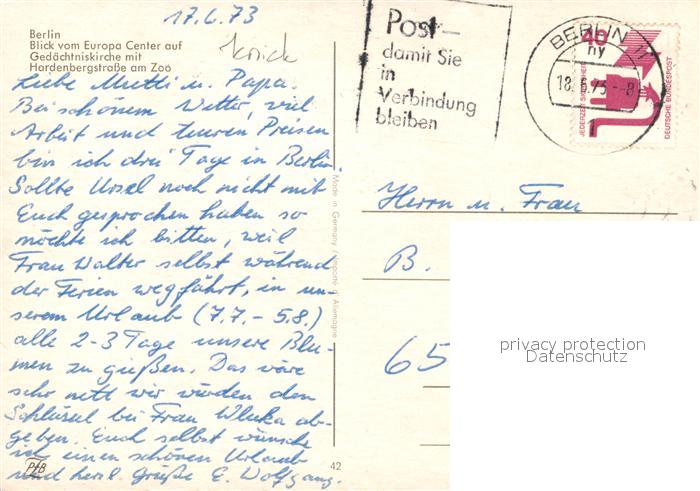 17.6.73
Berlin
Blick vom Europa Center auf
Gedächtniskirche mit
Hardenbergstraße am Zoo
Knick
Liebe Mutti u. Papa.
Bei schönem Wetter, viel
Arbeit und teuren Preisen
bin ich drei Tage in Berlin.
Sollte Ursel noch nicht mit
Euch gesprochen haben so
möchte ich bitten, weil
Frau Walter selbst während
der Ferien wegfährt, in un-
serem Urlaub (7.7. - 5.8.)
alle 2-3 Tage unsere Blu-
men zu gießen. Das wäre
sehr nett wir würden den
Schlüssel bei Frau ab-
geben. Euch selbst wünsche
ich einen schönen Urlaub
und herzl. Grüße E. Wolfgang.
PfB
42
Made in Germany / Importé d'Allemagne
Post-
damit Sie
in
Verbindung
bleiben
BERLIN 11
18.6.73--8
40
JEDERZEIT SICHERHEIT
DEUTSCHE BUNDESPOST
Herrn u. Frau
B.
65
privacy protection
Datenschutz